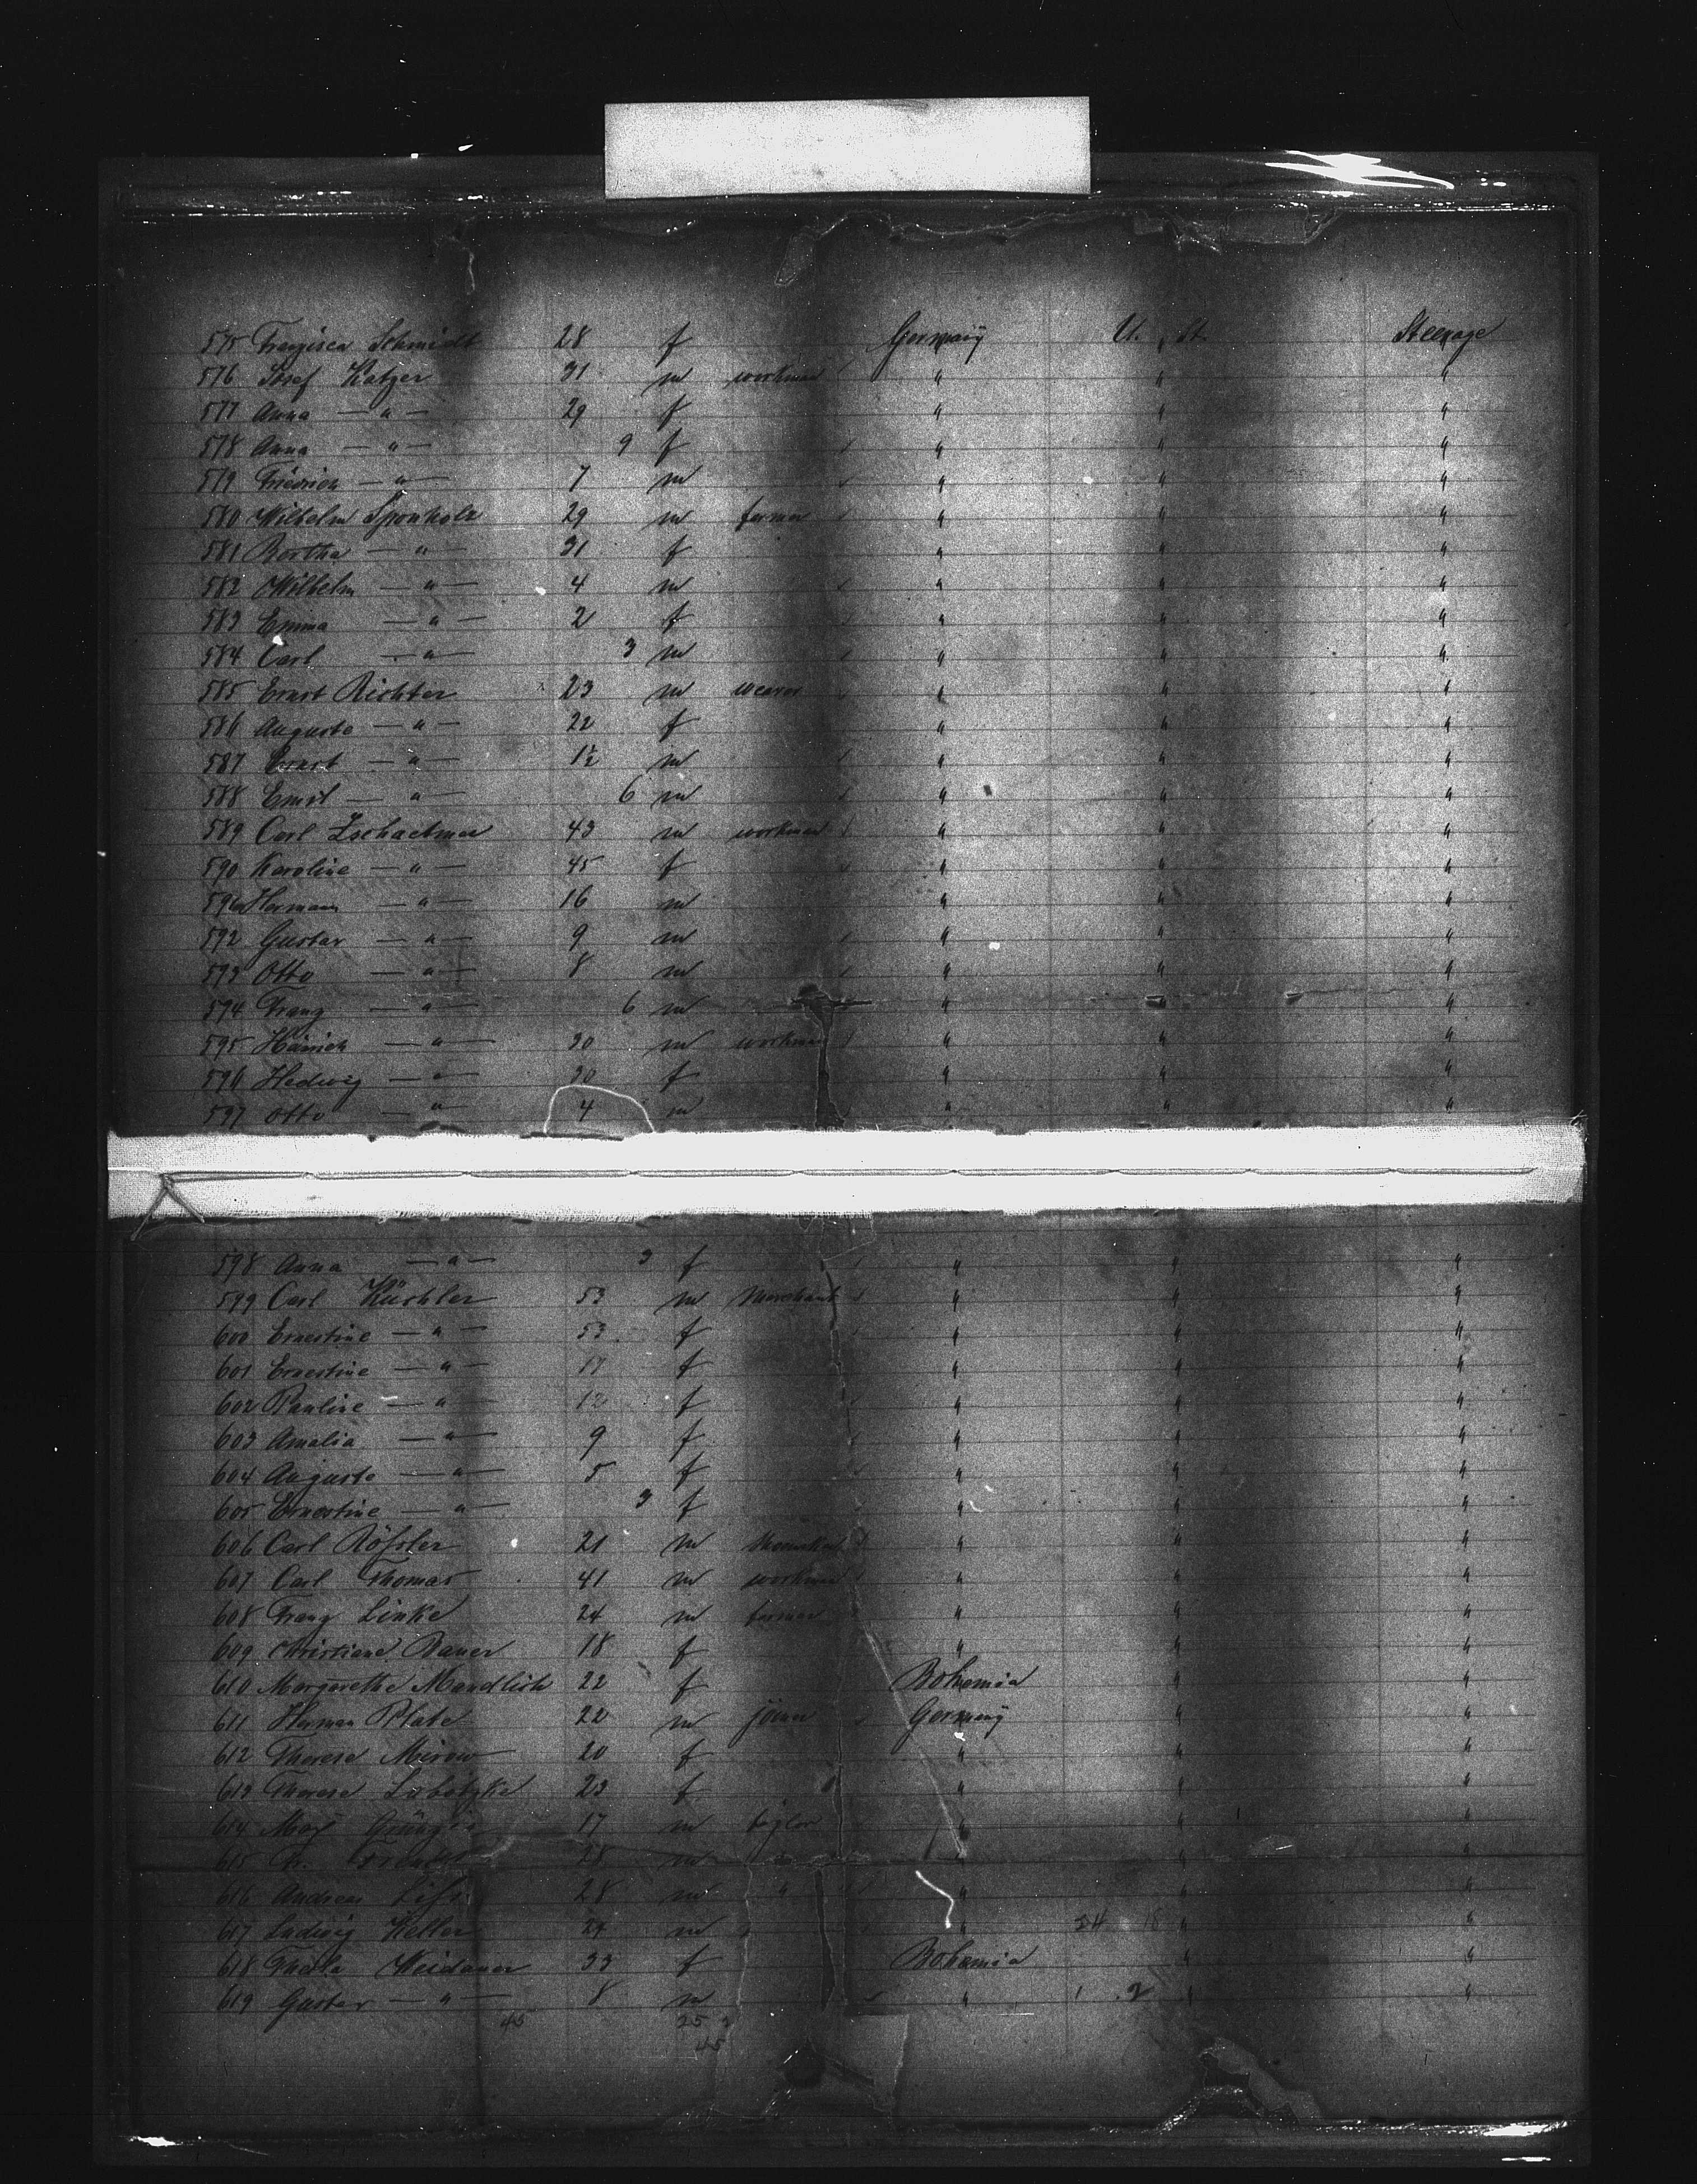 575 Franzisca Schmidt 28 f Germany U. St. Steerage
576 Josef Katzer 31 m workman " " "
577 Anna — " — 29 f " " "
578 Anna — " — 9 f " " "
579 Friedrich — " — 7 m " " "
580 Wilhelm Sponholz 29 m farmer " " "
581 Bertha — " — 31 f " " "
582 Wilhelm — " — 4 m " " "
583 Emma — " — 2 f " " "
584 Carl — " — 3 m " " "
585 Ernst Richter 23 m weaver " " "
586 Auguste — " — 22 f " " "
587 Ernst — " — 1½ m " " "
588 Emil — " — 6 m " " "
589 Carl 43 m workman " " "
590 Karoline — " — 45 f " " "
591 Hermann — " — 16 m " " "
592 Gustav — " — 9 m " " "
593 Otto — " — 8 m " " "
594 Franz — " — 6 m " " "
595 Heinrich — " — 30 m workman " " "
596 Hedwig — " — 30 f " " "
597 Otto — " — 4 m " " "
598 Anna — " — 3 f " " "
599 Carl Küchler 53 m Merchant " " "
600 Ernestine — " — 53 f " " "
601 Ernestine — " — 17 f " " "
602 Pauline — " — 12 f " " "
603 Amalia — " — 9 f " " "
604 Auguste — " — 5 f " " "
605 Ernestine — " — 3 f " " "
606 Carl Rößler 21 m " " "
607 Carl Thomas 41 m workman " " "
608 Franz Linke 24 m farmer " " "
609 Christiane Bauer 18 f " " "
610 Margarethe Mandlick 22 f Bohemia " "
611 Herman Plate 22 m joiner Germany " "
612 Therese Mirow 20 f " " "
613 Therese 23 f " " "
614 Max 17 m taylor " " "
615 28 m " " " "
616 Andreas 28 m " " " "
617 Ludwig Keller 24 m " " "
618 Thekla Weidauer 33 f Bohemia " "
619 Gustav — " — 8 m " " "
45 25 2
45